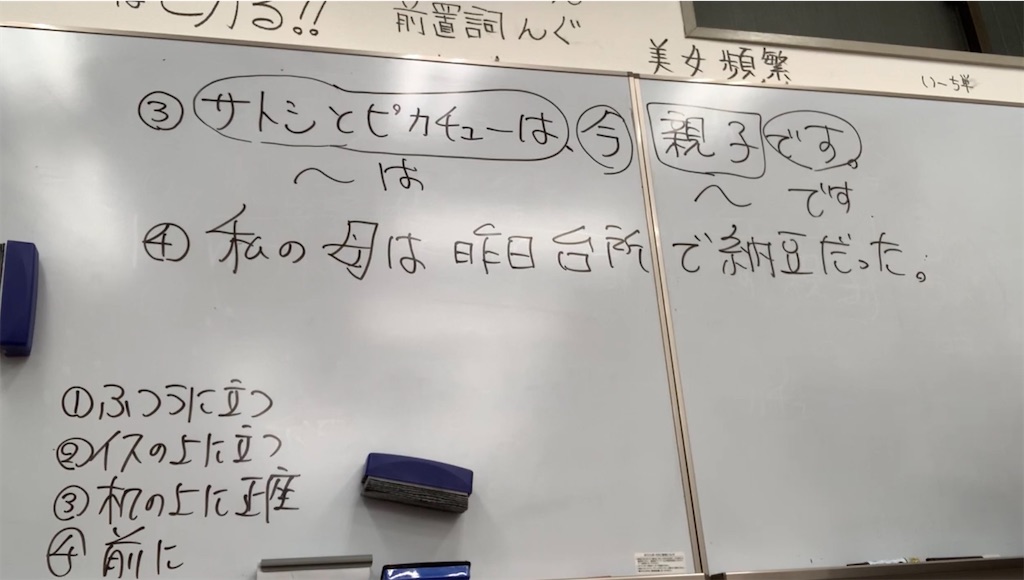 前置詞んぐ
美女頻繁
③ サトシとピカチューは、今 親子です。
〜は 〜です
④ 私の母は昨日台所で納豆だった。
①ふつうに立つ
②イスの上に立つ
③机の上に正座
④前に